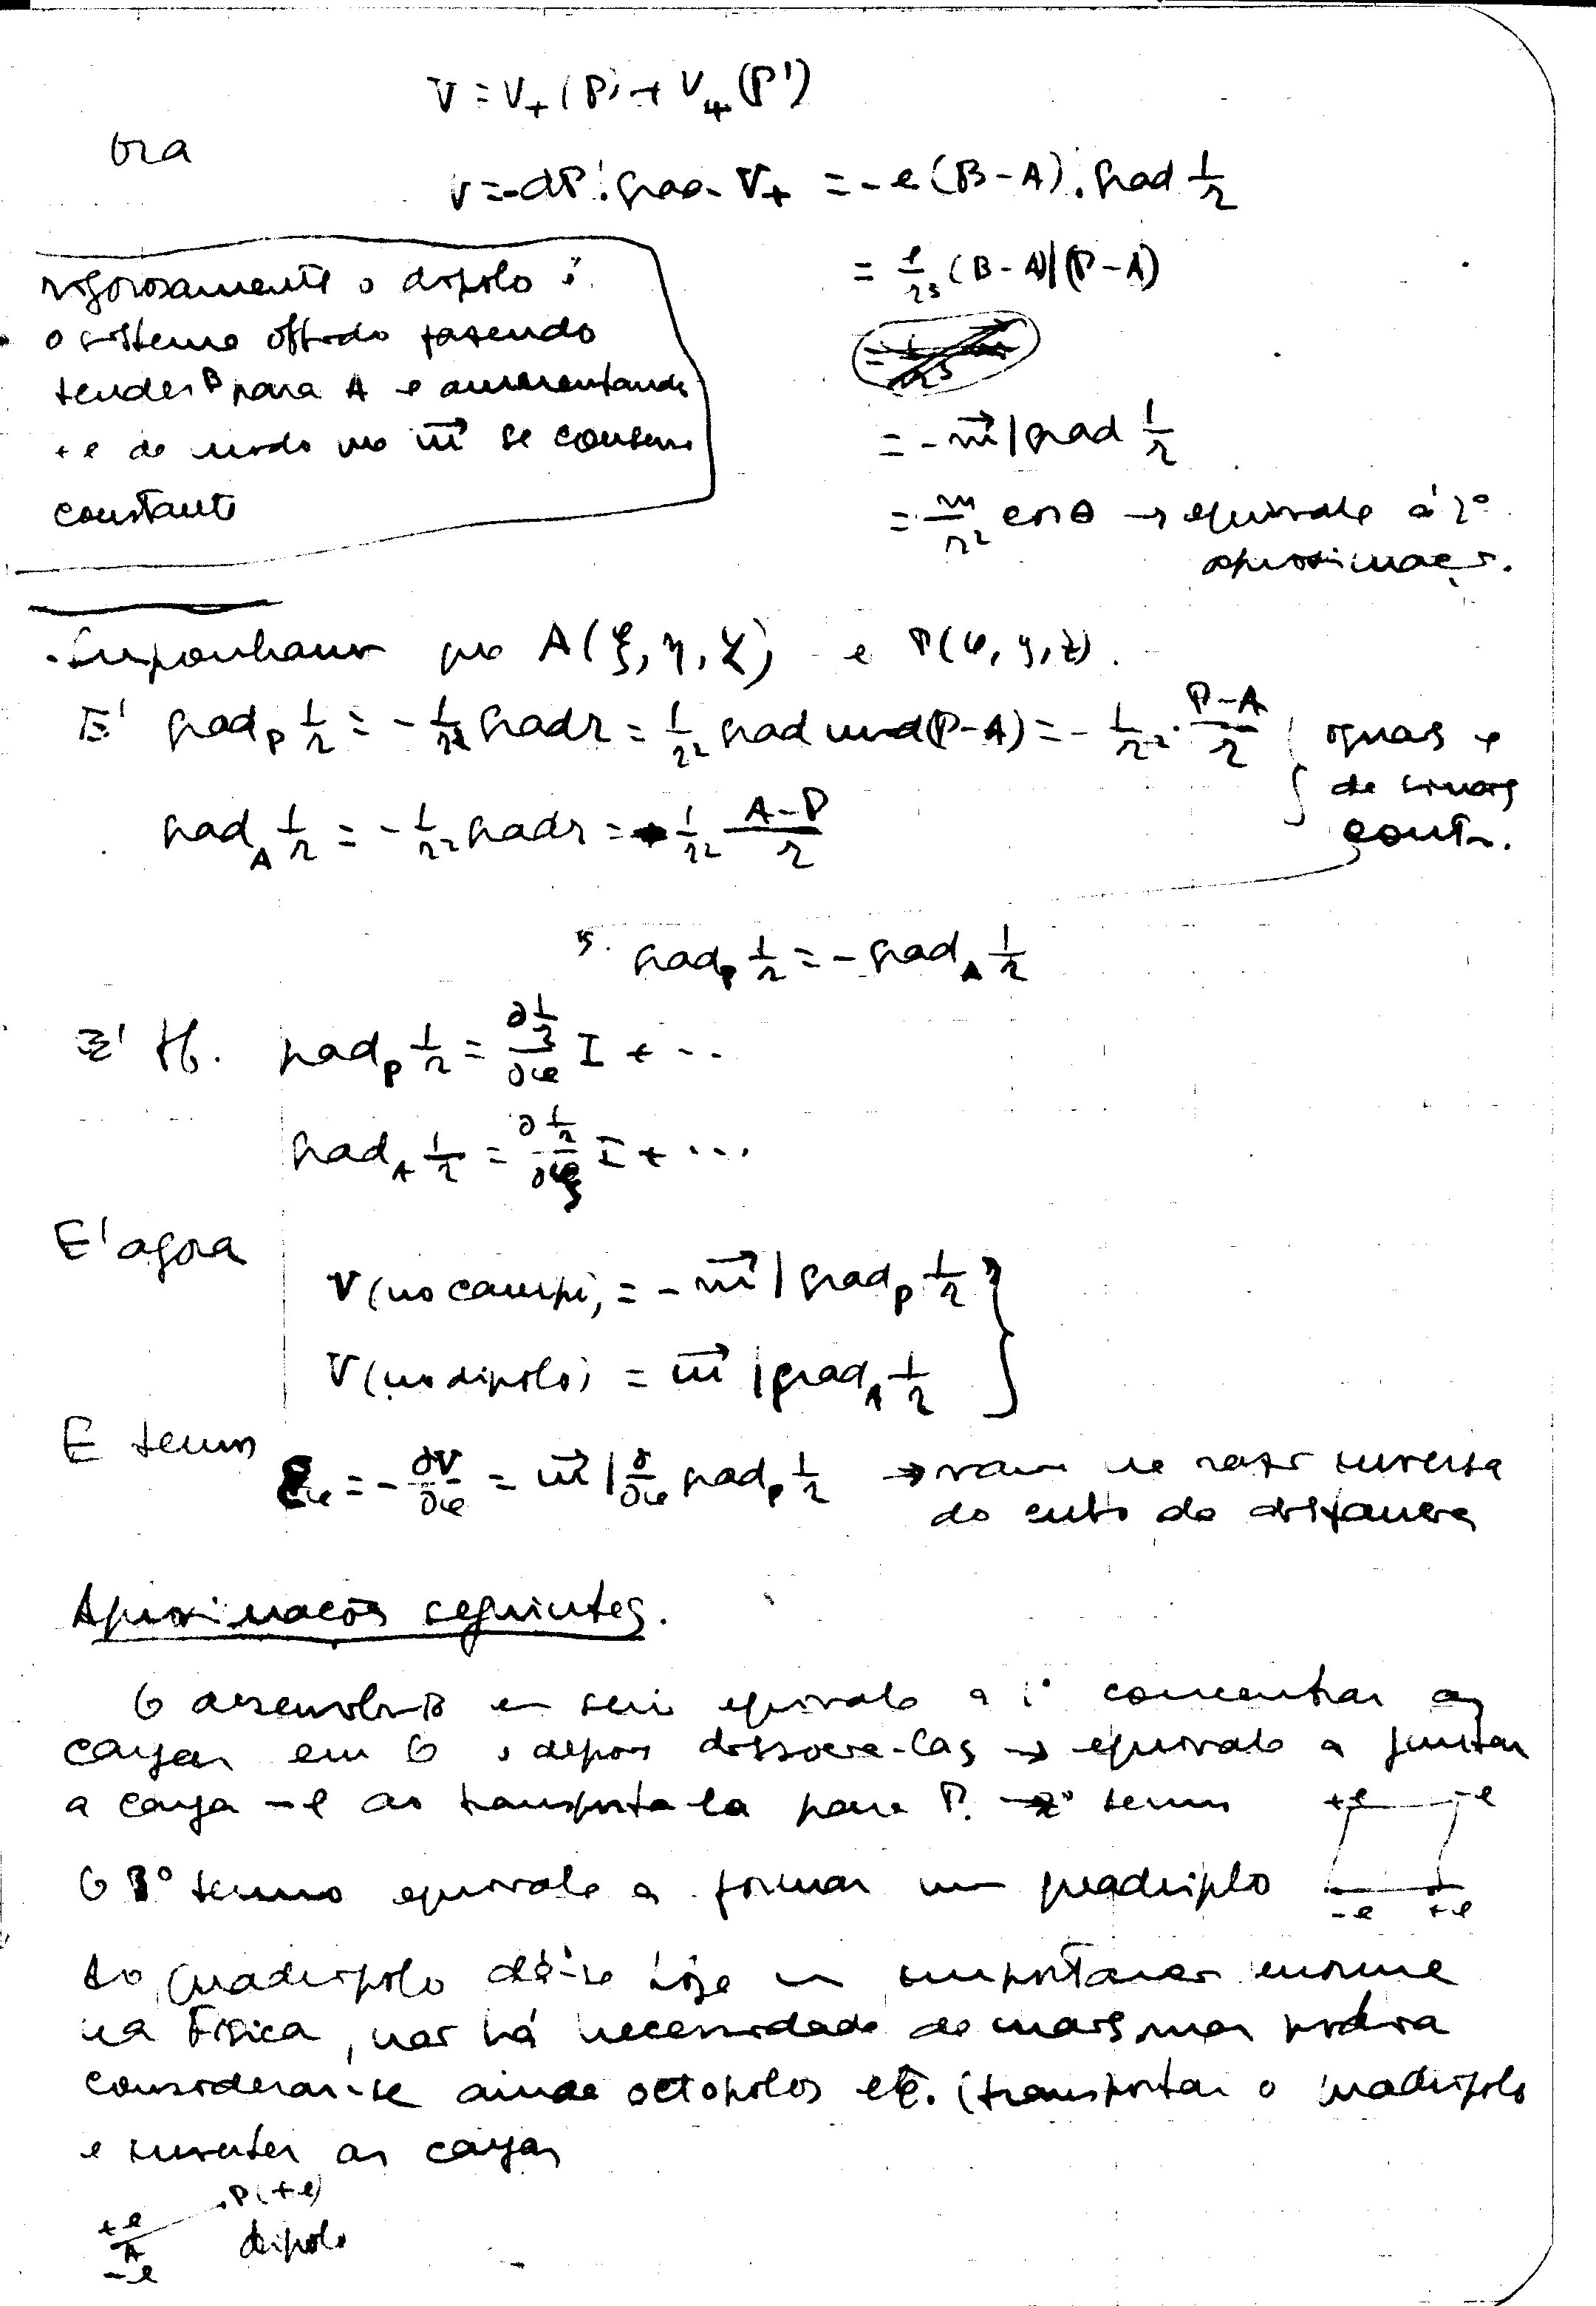 V = V₊(P) + V₊(P')
Ora
V = -dP'. grad V₊ = -e(B-A). grad 1/r
= e/r³ (B-A)|(P-A)
rigorosamente o dipolo é
o sistema obtido fazendo
tender B para A e aumentando
+e de modo que m⃗ se conserve
constante
= -m⃗ | grad 1/r
= m/r² cos θ → equivale à 2ª
aproximaç.
Suponhamos que A(ξ, η, ζ) e P(x, y, z).
E' grad_P 1/r = -1/r² grad r = 1/r² grad mod(P-A) = -1/r² . (P-A)/r } iguais e
de sinais
contr.
grad_A 1/r = -1/r² grad r = - 1/r² (A-P)/r
grad_P 1/r = -grad_A 1/r
E' tb. grad_P 1/r = ∂1/r/∂x I + ...
grad_A 1/r = ∂1/r/∂ξ I + ...
E' agora
V (no campo) = -m⃗ | grad_P 1/r
V (no dipolo) = m⃗ | grad_A 1/r
E temos
Eₓ = -∂V/∂x = m⃗ | ∂/∂x grad_P 1/r → varia na razão inversa
do cubo da distancia
Aproximações seguintes.
O desenvolvto em serie equivale a 1º concentrar as
cargas em O e depois dissocia-las → equivale a juntar
a carga -e ao transporta-la para P. → 2º termo +e -e
O 3º termo equivale a formar um quadripolo
-e +e
Ao quadripolo dá-se hoje uma importancia enorme
na Física, não há necessidade de mais mas podia
considerar-se ainda octopolos etc. (transportar o quadripolo
e inverter as cargas
P(+e)
+e
A
-e
dipolo